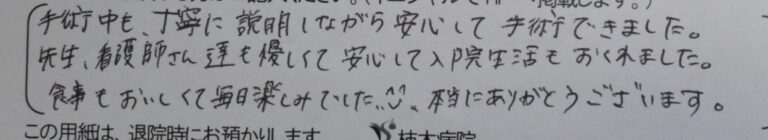 手術中も、丁寧に説明しながら安心して手術できました。
先生、看護師さん達も優しくて安心して入院生活もおくれました。
食事もおいしくて毎日楽しみでした。本当にありがとうございます。
この用紙は、退院時にお預かりします
柿木病院